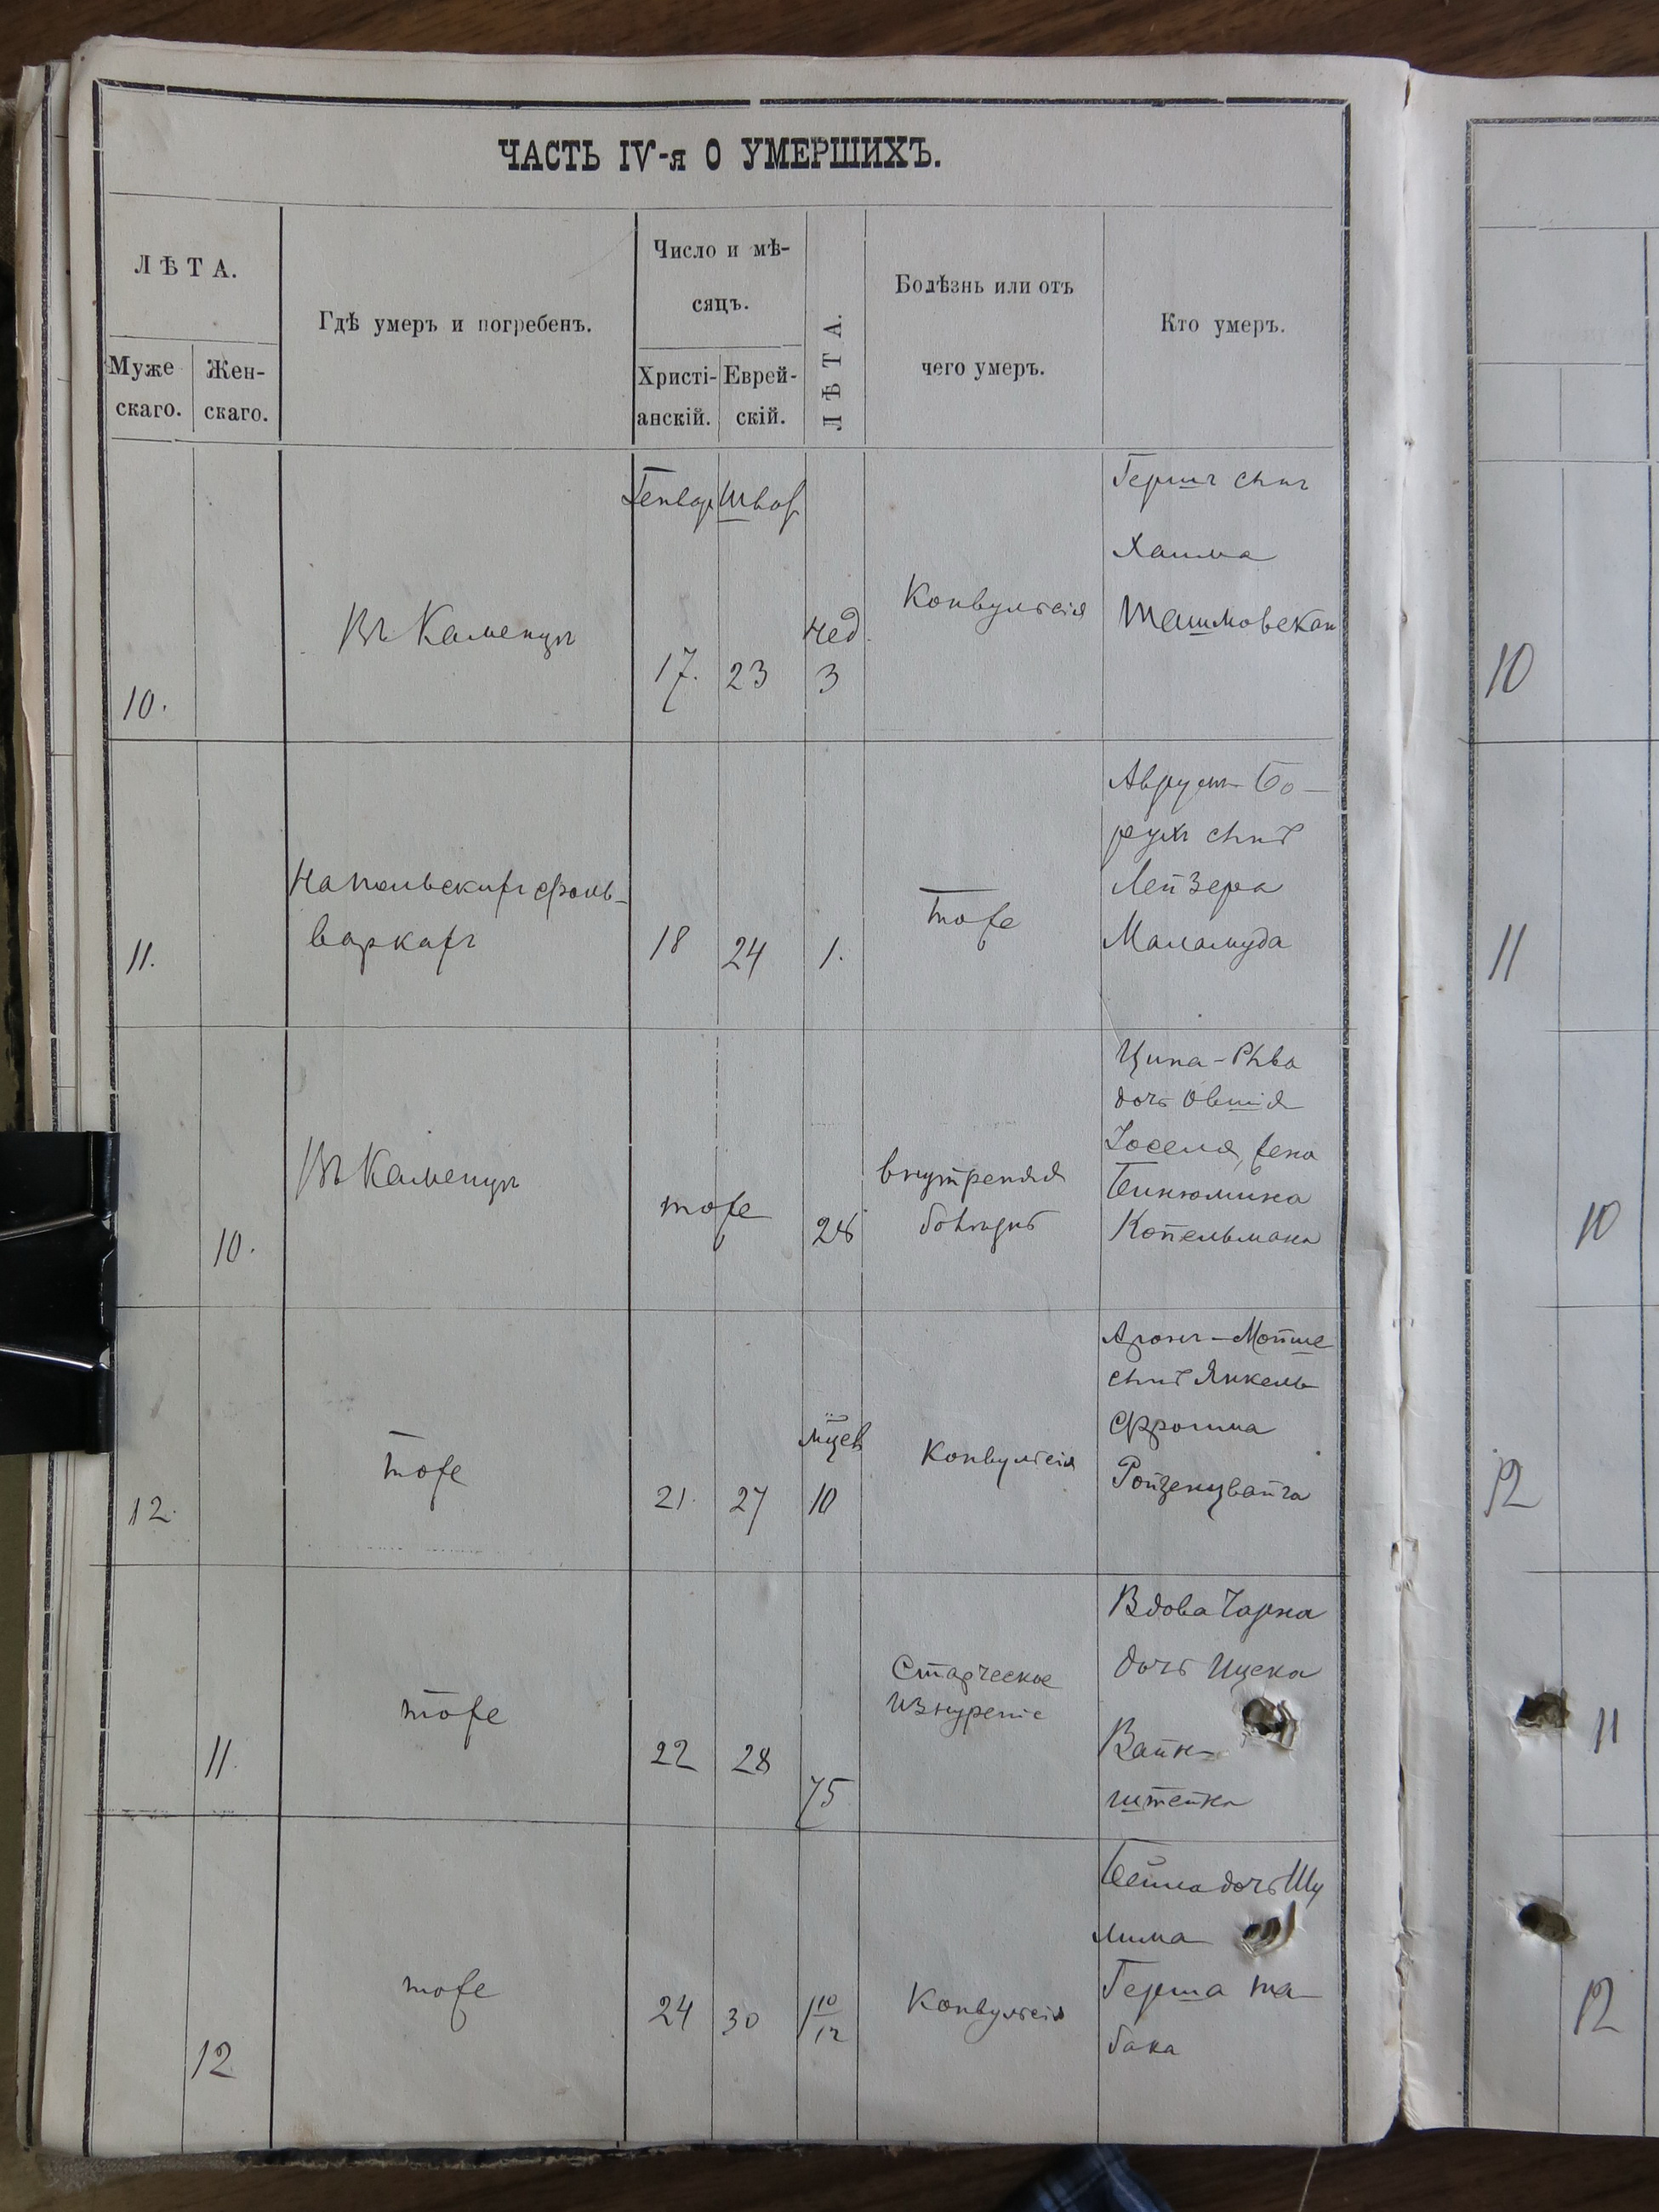 ЧАСТЬ IV-я О УМЕРШИХЪ.
ЛѢТА.
Муже
скаго.
Жен-
скаго.
Гдѣ умеръ и погребенъ.
Число и мѣ-
сяцъ.
Христі-
анскій.
Еврей-
скій.
ЛѢТА.
Болѣзнь или отъ
чего умеръ.
Кто умеръ.
10.
Въ Каменцѣ
Генвар
17.
Шват
23
нед.
3
Конвулсія
Гершъ сынъ
Хаима
10
11.
На Польскихъ фоль-
варкахъ
18
24
1.
тоже
Аврумъ-Бо-
рухъ сынъ
Лейзера
Маламуда
11
10.
Въ Каменцѣ
тоже
28
внутреняя
болѣзнь
Ципа-Рыва
дочь Овшія
Іоселя, жена
Бинюмина
Копельмана
10
12.
тоже
21.
27
мцев
10
Конвулсія
Аронъ-Мойше
сынъ Янкель
Фроима
Ройзенцвайга
12
11.
тоже
22
28
75
Старческое
изнуреніе
Вдова Чарна
дочь Ицека
Вайн-
штейна
11
12
тоже
24
30
1 10/12
Конвулсія
Бейла дочь Шу
лима
Герша Та-
бака
12